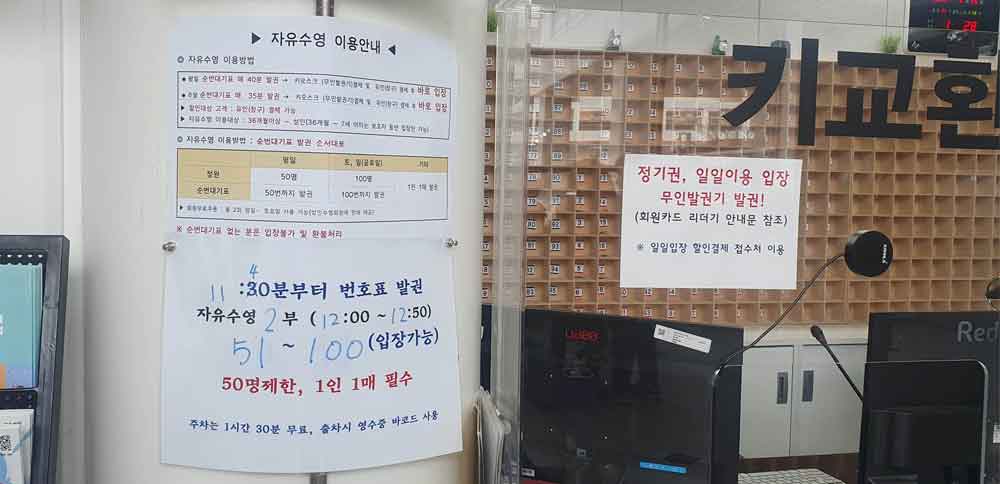 ▶ 자유수영 이용안내 ◀
◎ 자유수영 이용방법
● 평일 순번대기표 매 40분 발권 → 키오스크 (무인발권기)결제 및 유인(창구) 결제 후 바로 입장
● 주말 순번대기표 매 35분 발권 → 키오스크 (무인발권기)결제 및 유인(창구) 결제 후 바로 입장
▶ 할인대상 고객 : 유인(창구) 결제 가능
▶ 자유수영 이용대상 : 36개월이상 ~ 성인(36개월 ~ 7세 어린이는 보호자 동반 입장만 가능)
◎ 자유수영 이용방법 : 순번대기표 발권 순서대로
평일 토, 일(공휴일) 기타
정원 50명 100명
순번대기표 50번까지 발권 100번까지 발권 1인 1매 발권
※ 순번대기표 없는 분은 입장불가 및 환불처리
11 :40분부터 번호표 발권
자유수영 2 부 (12:00 ~ 12:50)
51 ~ 100 (입장가능)
50명제한, 1인 1매 필수
주차는 1시간 30분 무료, 출차시 영수증 바코드 사용
키교환
정기권, 일일이용 입장
무인발권기 발권!
(회원카드 리더기 안내문 참조)
※ 일일입장 할인결제 접수처 이용
Red